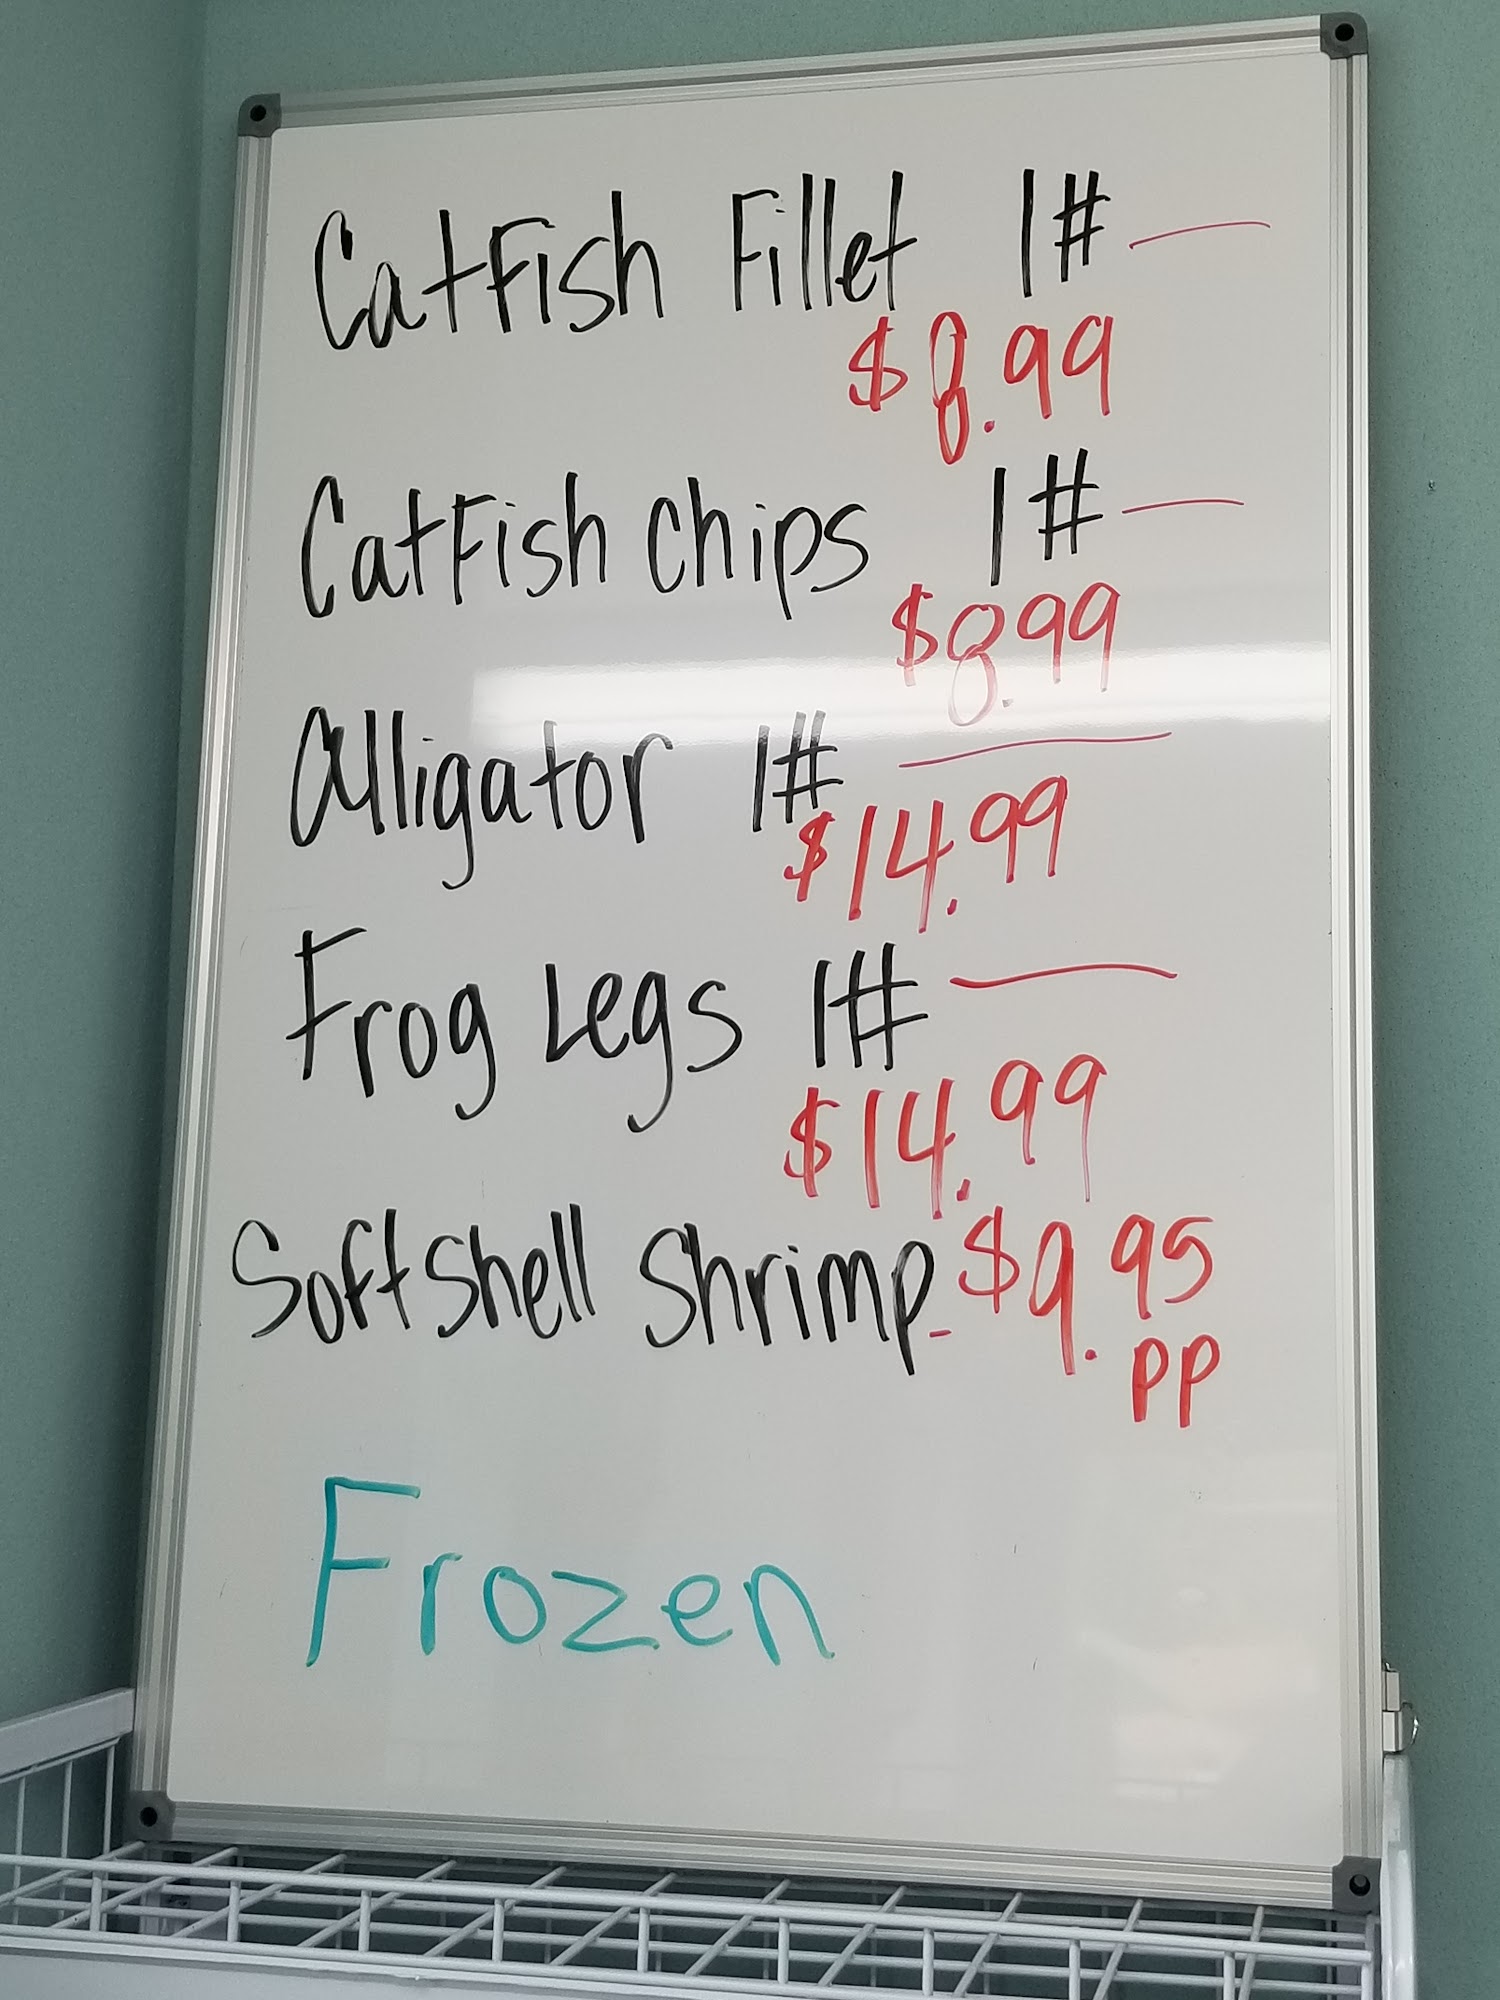 Catfish Fillet 1# —
$8.99
Catfish Chips 1# —
$8.99
Alligator 1# —
$14.99
Frog Legs 1# —
$14.99
Softshell Shrimp - $9.95
PP
Frozen